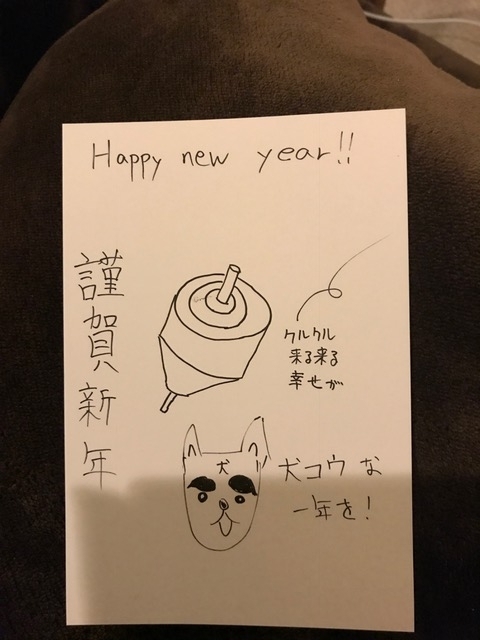 Happy new year!!
謹賀新年
クルクル
来る来る
幸せが
犬
犬コウな
一年を!